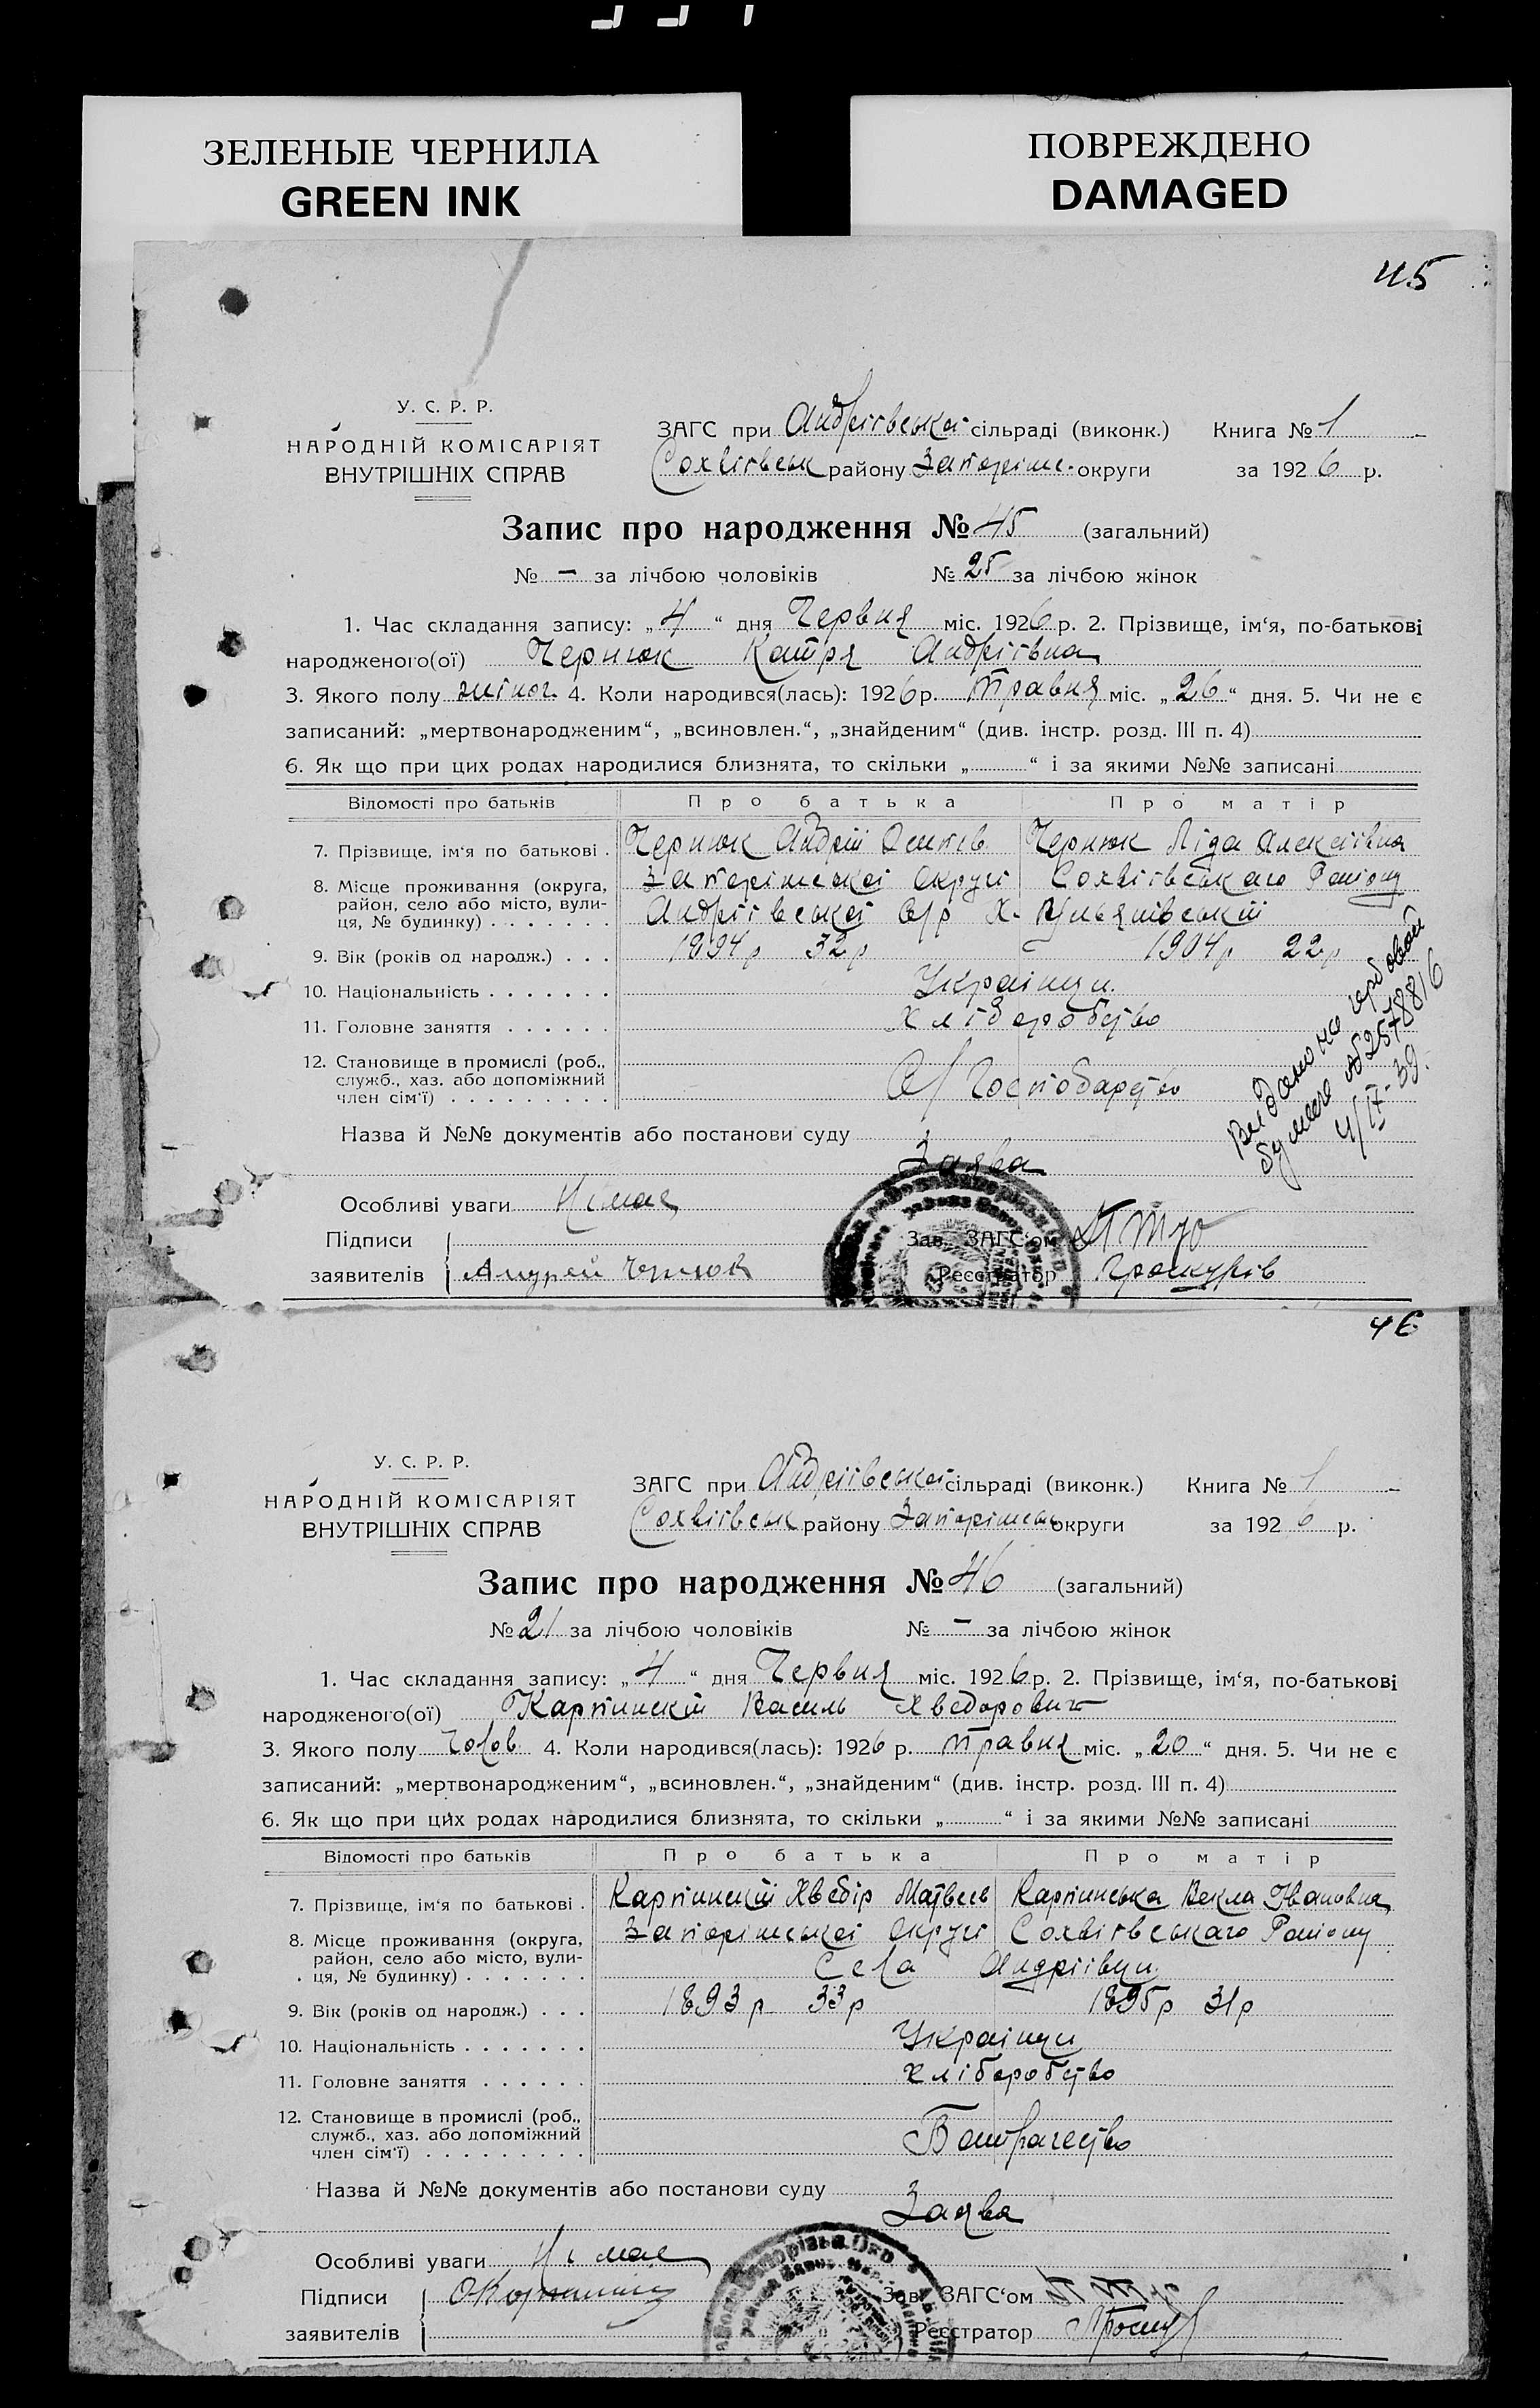 ЗЕЛЕНЫЕ ЧЕРНИЛА
GREEN INK
ПОВРЕЖДЕНО
DAMAGED
45
У. С. Р. Р.
НАРОДНІЙ КОМІСАРІЯТ
ВНУТРІШНІХ СПРАВ
ЗАГС при Андріівськоі сільраді (виконк.) Книга № 1
Софіївськ району Запоріж. округи за 1926 р.
Запис про народження № 45 (загальний)
№ - за лічбою чоловіків № 25 за лічбою жінок
1. Час складання запису: „4“ дня Червня міс. 1926 р. 2. Прізвище, ім‘я, по-батькові
народженого(ої) Чернюк Катря Андріівна
3. Якого полу жіноч. 4. Коли народився(лась): 1926 р. травня міс. „26“ дня. 5. Чи не є
записаний: „мертвонародженим“, „всиновлен.“, „знайденим“ (див. інстр. розд. III п. 4)
6. Як що при цих родах народилися близнята, то скільки „ “ і за якими №№ записані
Відомості про батьків Про батька Про матір
7. Прізвище, ім‘я по батькові . Чернюк Андрій Чернюк Ліда Алексіівна
8. Місце проживання (округа, Запоріжськоі округи Району
район, село або місто, вули- Андріівськоі с/р Х.
ця, № будинку) . . . . . . .
9. Вік (років од народж.) . . . 1894 р 32 р 1904 р 22 р
10. Національність . . . . . . . Украінци.
11. Головне заняття . . . . . . Хліборобство
12. Становище в промислі (роб., С/Господарство
служб., хаз. або допоміжний
член сім‘ї) . . . . . . . . .
Видано на гербовой
бумаге 2578816
4/IV-39.
Назва й №№ документів або постанови суду
Заява
Особливі уваги Німає
Підписи Зав. ЗАГС‘ом
заявителів Андрей Чернюк Реєстратор Проскурів
46
У. С. Р. Р.
НАРОДНІЙ КОМІСАРІЯТ
ВНУТРІШНІХ СПРАВ
ЗАГС при Андріівськоі сільраді (виконк.) Книга № 1
району Запоріжськ округи за 1926 р.
Запис про народження № 46 (загальний)
№ 21 за лічбою чоловіків № - за лічбою жінок
1. Час складання запису: „4“ дня Червня міс. 1926 р. 2. Прізвище, ім‘я, по-батькові
народженого(ої) Карпинский Василь Хведорович
3. Якого полу Чолов 4. Коли народився(лась): 1926 р. травня міс. „20“ дня. 5. Чи не є
записаний: „мертвонародженим“, „всиновлен.“, „знайденим“ (див. інстр. розд. III п. 4)
6. Як що при цих родах народилися близнята, то скільки „ “ і за якими №№ записані
Відомості про батьків Про батька Про матір
7. Прізвище, ім‘я по батькові . Карпинский Хведір Матвеев Карпинська Векла Івановна
8. Місце проживання (округа, Запоріжськоі округи Району
район, село або місто, вули- Села Андріівци
ця, № будинку) . . . . . . .
9. Вік (років од народж.) . . . 1893 р 33 р 1895 р 31 р
10. Національність . . . . . . . Украінци
11. Головне заняття . . . . . . хліборобство
12. Становище в промислі (роб., Батрачество
служб., хаз. або допоміжний
член сім‘ї) . . . . . . . . .
Назва й №№ документів або постанови суду
Заява
Особливі уваги Німає
Підписи Зав. ЗАГС‘ом
заявителів Реєстратор